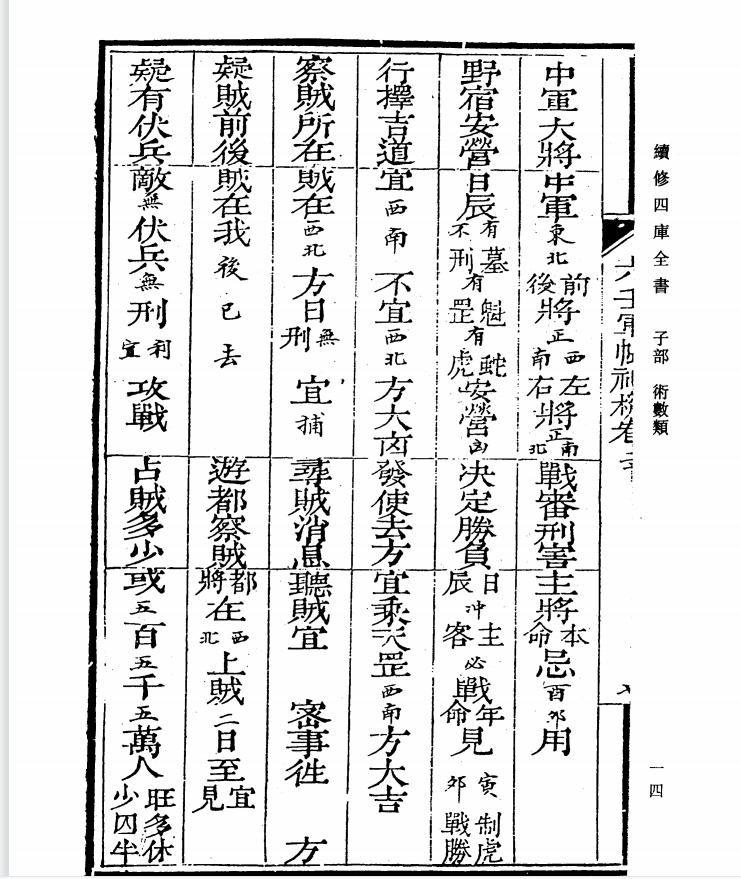 續修四庫全書 子部 術數類
一四
六壬軍帳神機卷
中軍大將 中軍東北前後將正西南左右將正南北 戰審刑害 主將本命忌酉卯用
野宿安營 日辰有不墓刑有魁罡有蛇虎安營凶 決定勝負 日辰冲主客必戰年命見寅卯制虎戰勝
行擇吉道 宜西南不宜西北方大凶 發使去方 宜乘天罡西南方大吉
察賊所在 賊在西北方日無刑宜捕 尋賊消息 聽賊宜 密事徃 方
疑賊前後 賊在我後已去 遊都察賊 都將在西北上賊二日至宜見
疑有伏兵 敵無伏兵無刑利宜攻戰 占賊多少 或五百五千五萬人旺多休少囚半